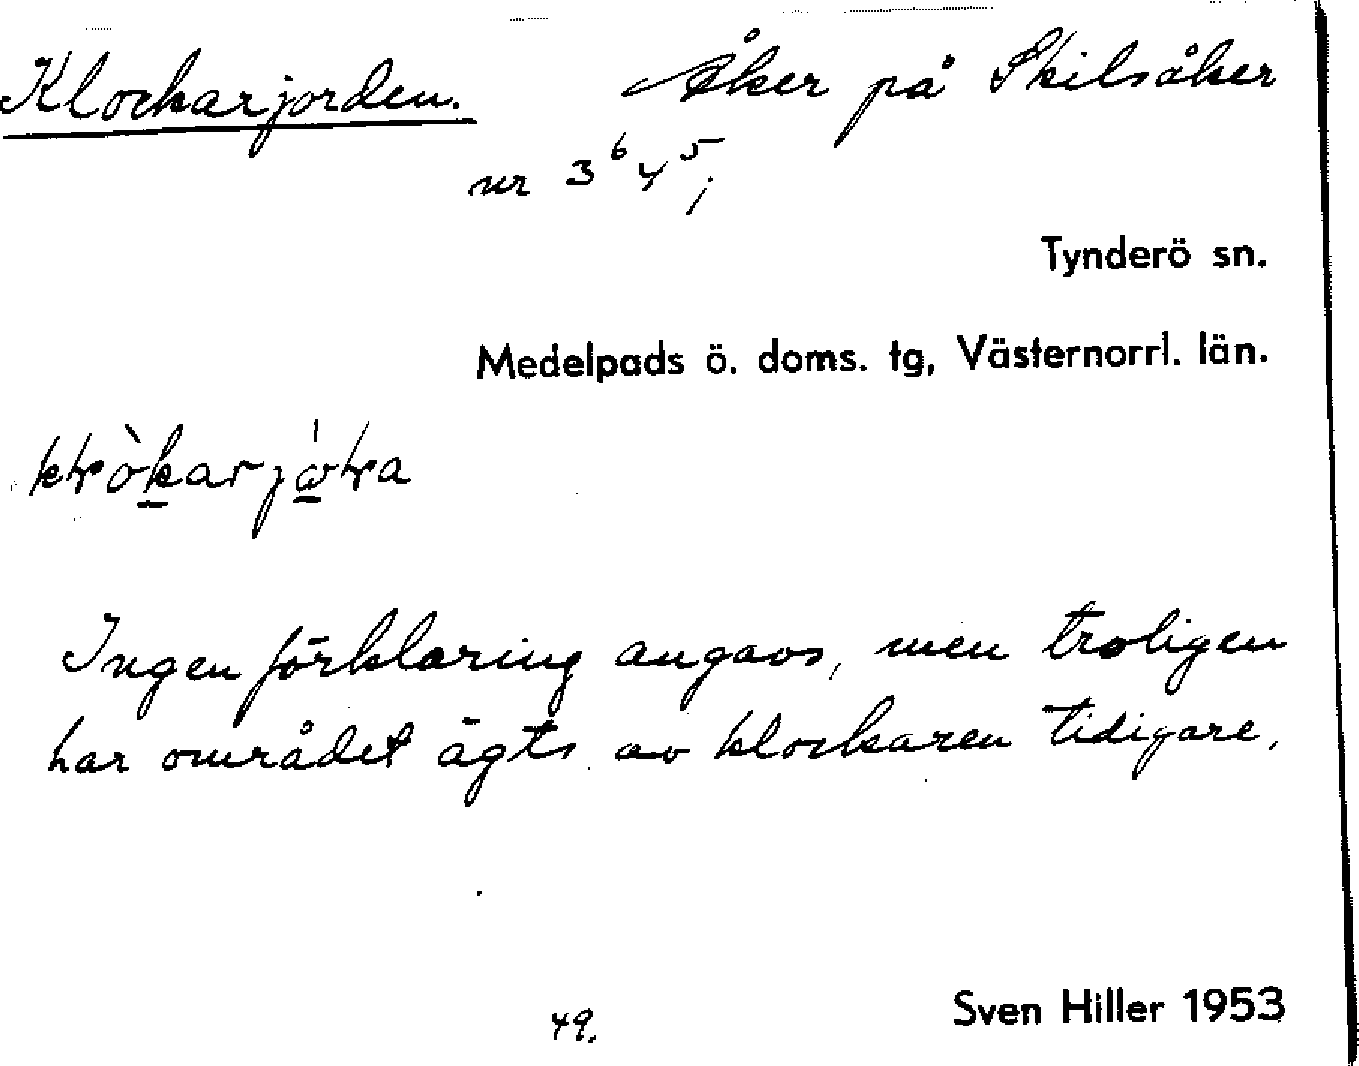 Klockarjorden. Åker på Skilsåker
nr 3⁶ 4⁵;
Tynderö sn.
Medelpads ö. doms. tg, Västernorrl. län.
Ingen förklaring angavs, men troligen
har området ägts av klockaren tidigare.
49.
Sven Hiller 1953